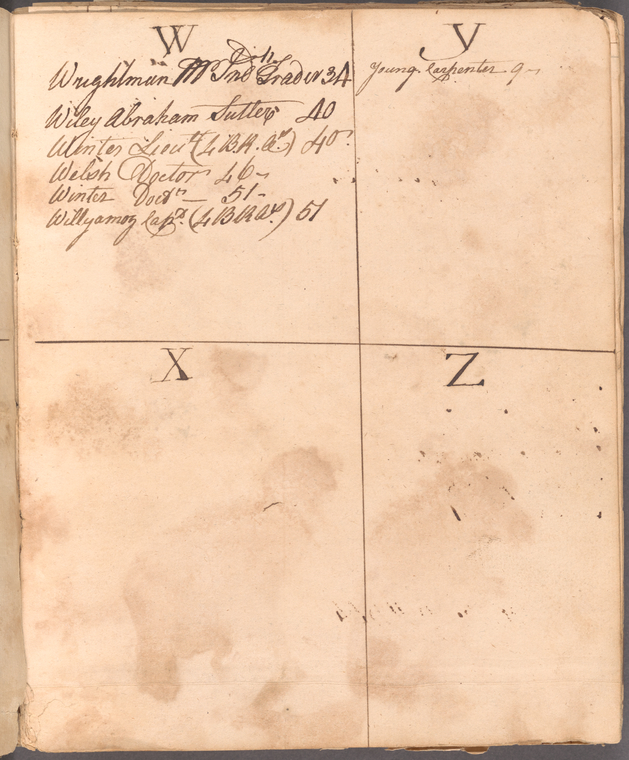 W
Wrightman Mr Ind Trader 34
Wiley Abraham Sutler 40
Winter Lieut (4 B R A) 40
Welsh Doctor 46
Winter Doctr 51
Willyamoz Capt (4 B R A) 51
Y
Young Carpenter 9
X
Z